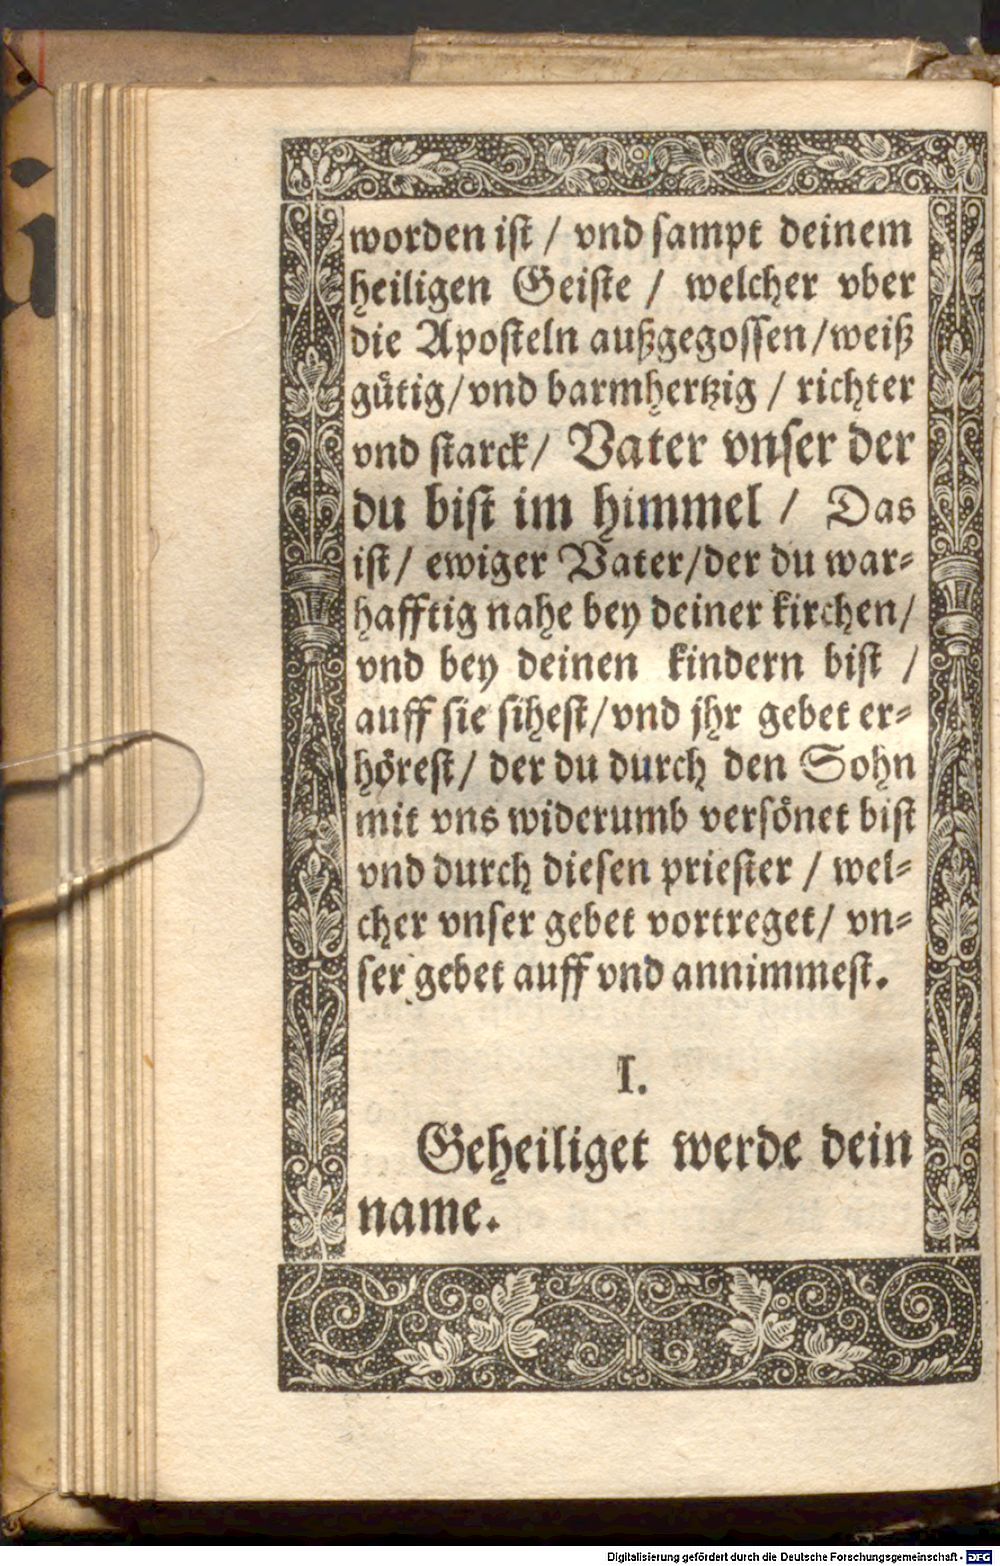 worden iſt / vnd ſampt deinem
heiligen Geiſte / welcher vber
die Apoſteln außgegoſſen / weiß
guͤtig / vnd barmhertzig / richter
vnd ſtarck / Vater vnſer der
du biſt im himmel / Das
iſt / ewiger Vater / der du war⸗
hafftig nahe bey deiner kirchen /
vnd bey deinen kindern biſt /
auff ſie ſiheſt / vnd jhr gebet er⸗
hoͤreſt / der du durch den Sohn
mit vns widerumb verſoͤnet biſt
vnd durch dieſen prieſter / wel⸗
cher vnſer gebet vortreget / vn⸗
ſer gebet auff vnd annimmeſt.
I.
Geheiliget werde dein
name.
Digitalisierung gefördert durch die Deutsche Forschungsgemeinschaft - DFG